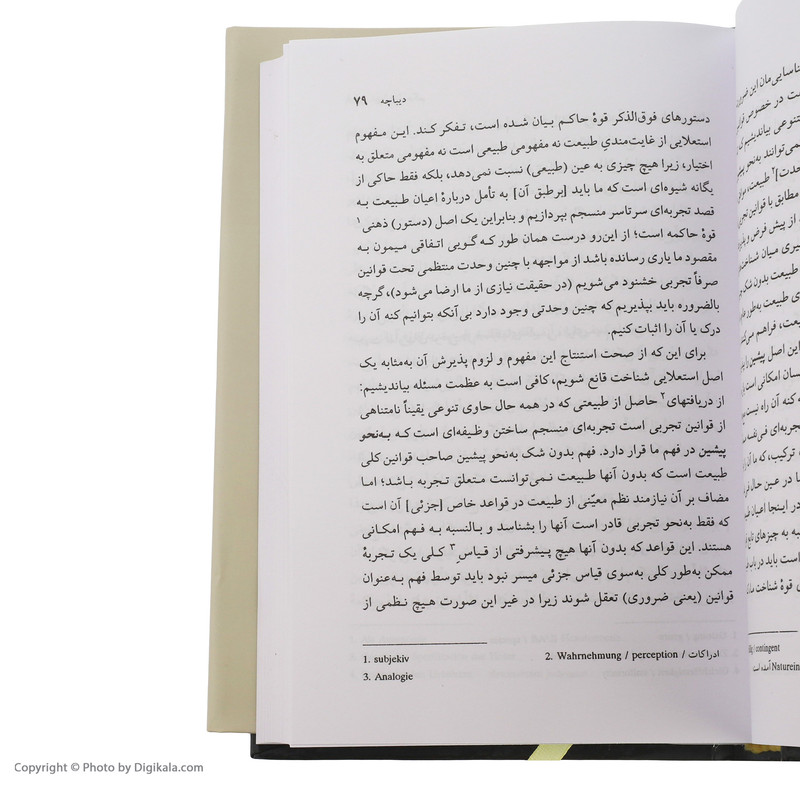 دیباچه ۷۹
دستورهای فوق‌الذکر قوهٔ حاکم بیان شده است، تفکر کند. این مفهوم
استعلایی از غایت‌مندیِ طبیعت نه مفهومی طبیعی است نه مفهومی متعلق به
اختیار، زیرا هیچ چیزی به عین (طبیعی) نسبت نمی‌دهد، بلکه فقط حاکی از
یگانه شیوه‌ای است که ما باید [برطبق آن] به تأمل دربارهٔ اعیان طبیعت به
قصد تجربه‌ای سرتاسر منسجم بپردازیم و بنابراین یک اصل (دستور) ذهنی۱
قوهٔ حاکمه است؛ از این‌رو درست همان طور که گویی اتفاقی میمون به
مقصود ما یاری رسانده باشد از مواجهه با چنین وحدت منتظمی تحت قوانین
صرفاً تجربی خشنود می‌شویم (در حقیقت نیازی از ما ارضا می‌شود)، گرچه
بالضروره باید بپذیریم که چنین وحدتی وجود دارد بی‌آنکه بتوانیم کنه آن را
درک یا آن را اثبات کنیم.
برای این که از صحت استنتاج این مفهوم و لزوم پذیرش آن به‌مثابه یک
اصل استعلایی شناخت قانع شویم، کافی است به عظمت مسئله بیاندیشیم:
از دریافتهای۲ حاصل از طبیعتی که در همه حال حاوی تنوعی یقیناً نامتناهی
از قوانین تجربی است تجربه‌ای منسجم ساختن وظیفه‌ای است که به‌نحو
پیشین در فهم ما قرار دارد. فهم بدون شک به‌نحو پیشین صاحب قوانین کلی
طبیعت است که بدون آنها طبیعت نمی‌توانست متعلق تجربه باشد؛ اما
مضاف بر آن نیازمند نظم معیّنی از طبیعت در قواعد خاص [جزئی] آن است
که فقط به‌نحو تجربی قادر است آنها را بشناسد و بالنسبه به فهم امکانی
هستند. این قواعد که بدون آنها هیچ پیشرفتی از قیاسِ۳ کلی یک تجربهٔ
ممکن به‌طور کلی به‌سوی قیاس جزئی میسر نبود باید توسط فهم به‌عنوان
قوانین (یعنی ضروری) تعقل شوند زیرا در غیر این صورت هیچ نظمی از
1. subjekiv
2. Wahrnehmung / perception / ادراکات
3. Analogie
contingent
آمده است Naturein
Copyright © Photo by Digikala.com